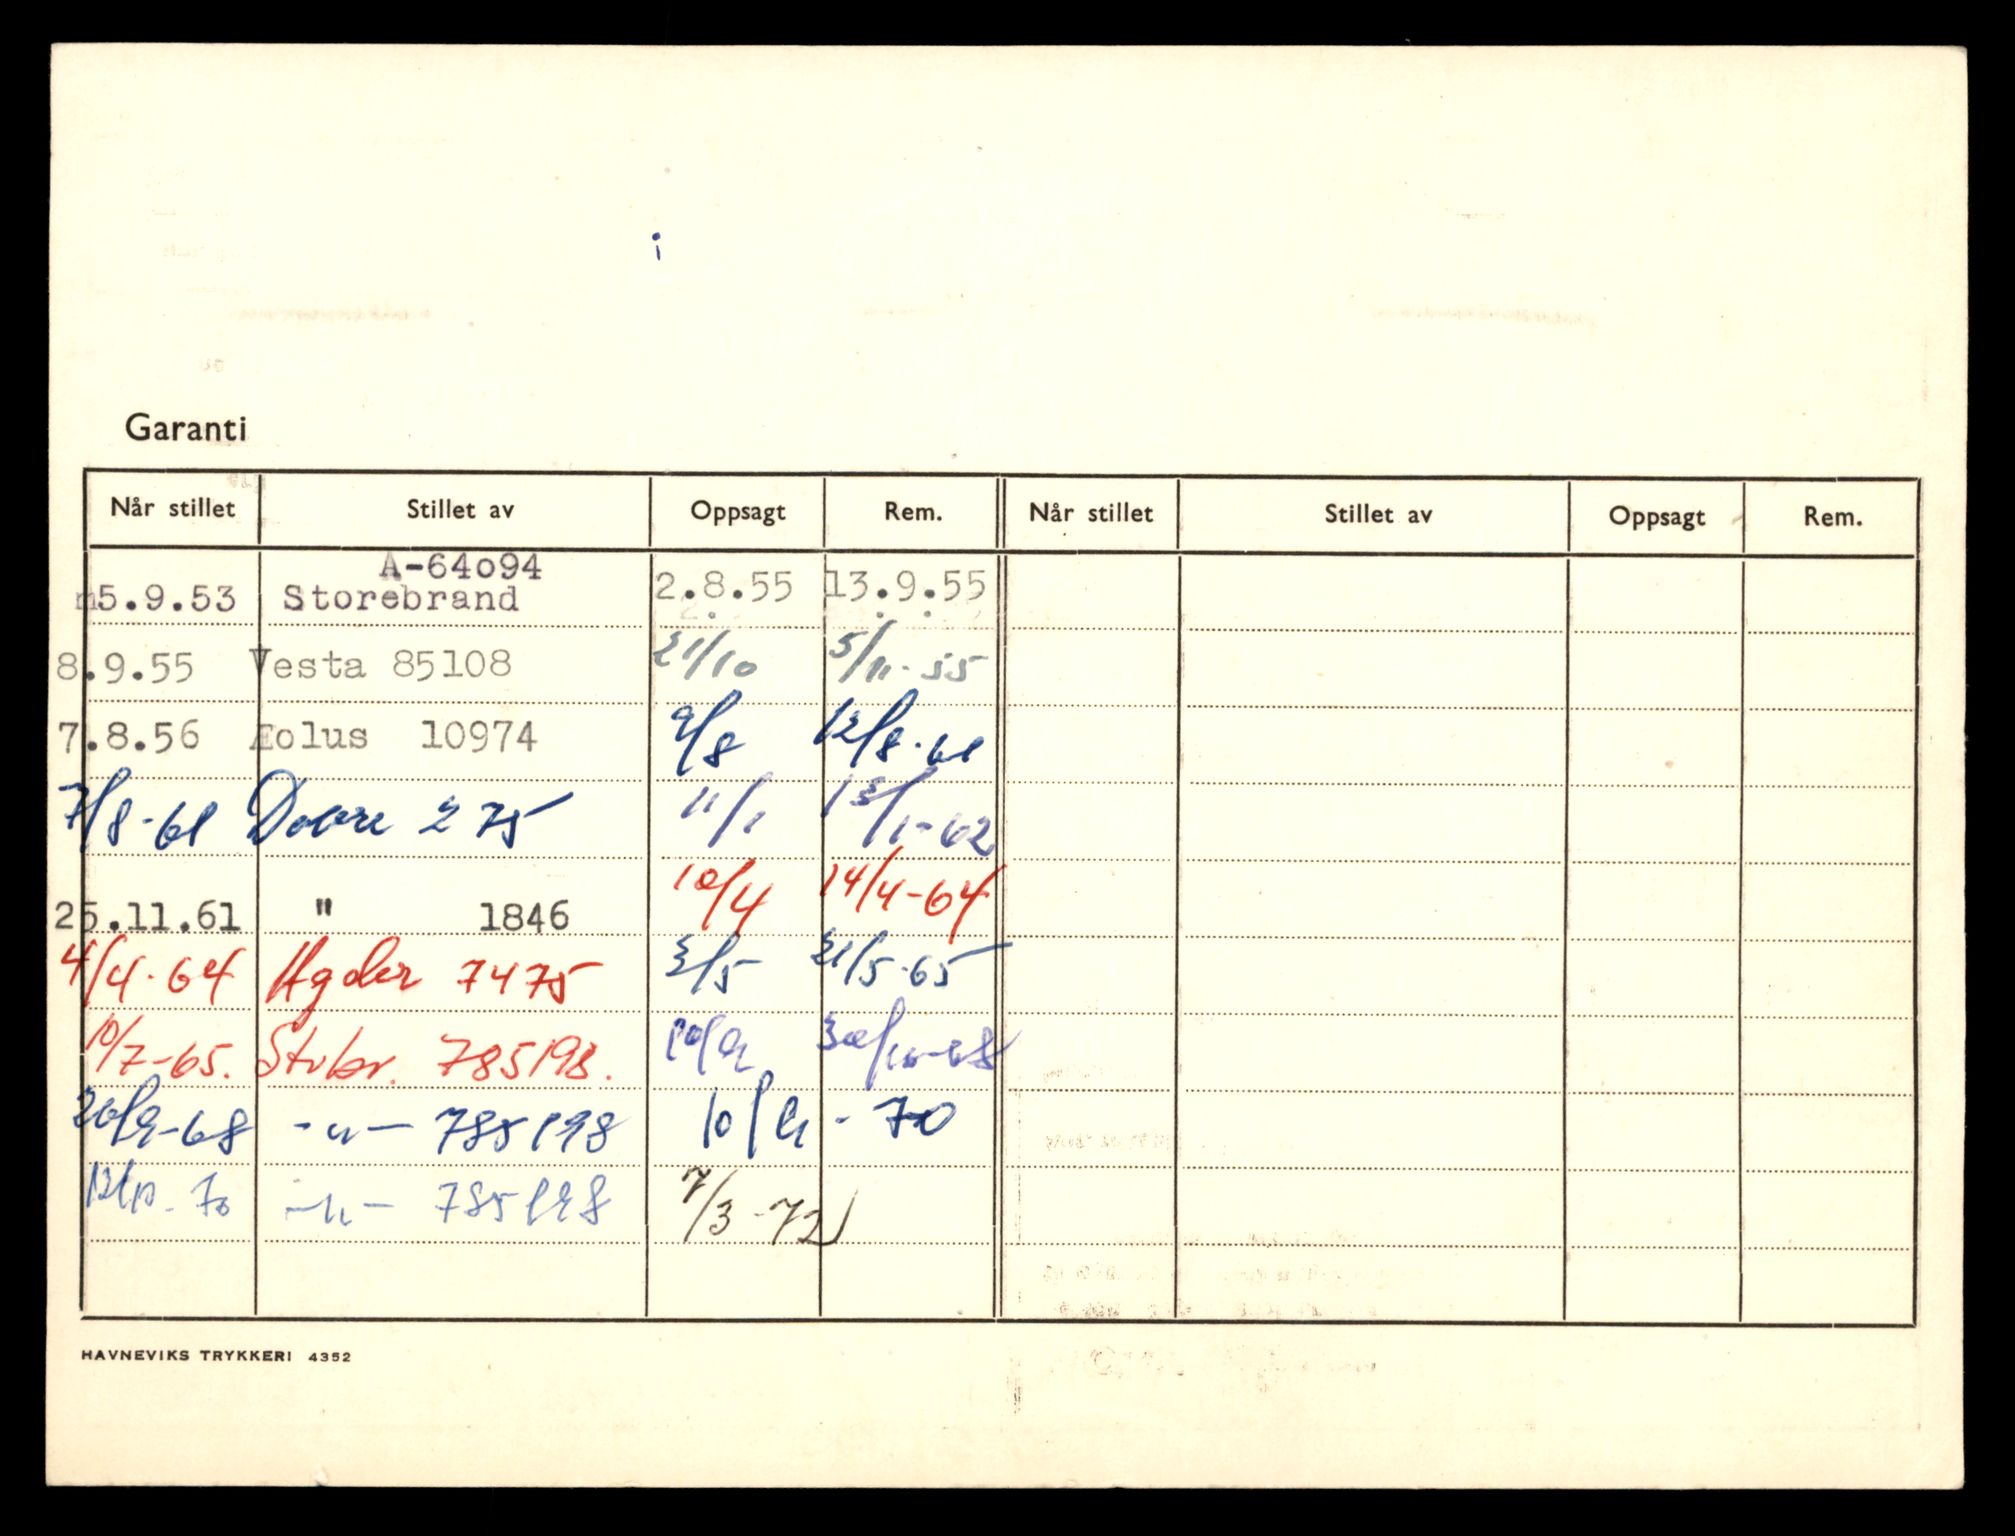 i
Garanti
Når stillet Stillet av Oppsagt Rem. Når stillet Stillet av Oppsagt Rem.
A-64094
15.9.53 Storebrand 2.8.55 13.9.55
8.9.55 Vesta 85108 21/10 5/11-55
7.8.56 Æolus 10974 9/8 12/8-61
7/8-61 Dovre 275 11/1 13/1-62
25.11.61 " 1846 10/4 14/4-64
4/4-64 Agder 7475 3/5 21/5-65
10/7-65. Stbr. 785198. 30/10-68
20/9-68 -"- 785198 10/9-70
12/10-70 -"- 785198 7/3-72
HAVNEVIKS TRYKKERI 4352